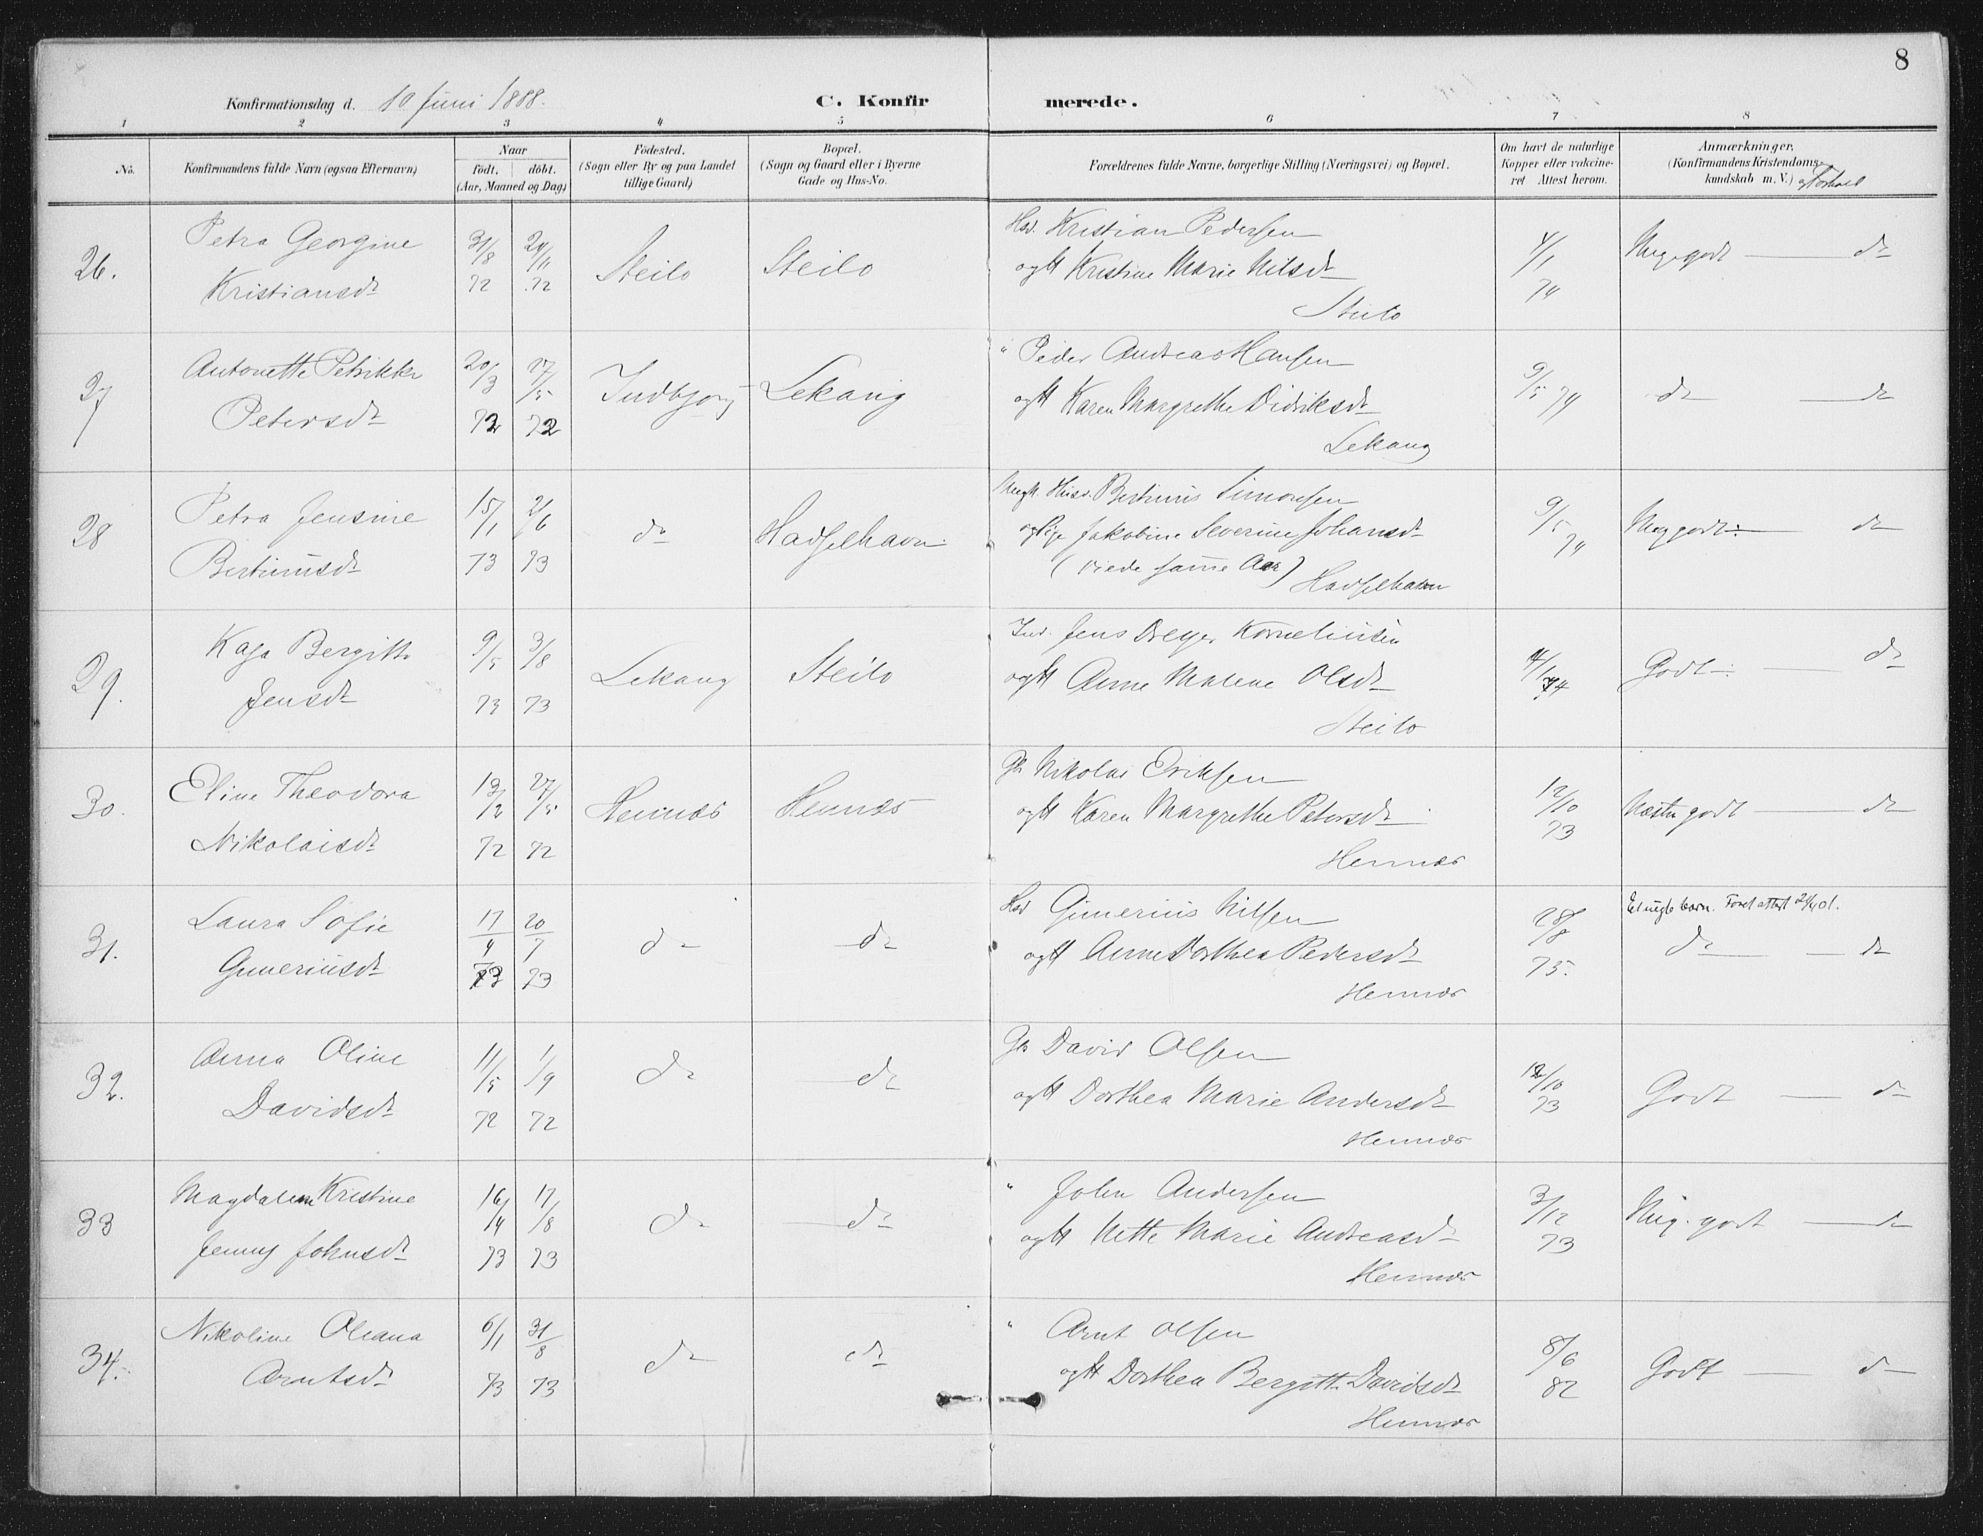 8
Konfirmationsdag d. 10 Juni 1888.
C. Konfirmerede.
1 2 3 4 5 6 7 8
No.
Konfirmandens fulde Navn (ogsaa Efternavn)
Naar
født. døbt.
(Aar, Maaned og Dag)
Fødested.
(Sogn eller By og paa Landet
tillige Gaard)
Bopæl.
(Sogn og Gaard eller i Byerne
Gade og Hus-No.
Forældrenes fulde Navne, borgerlige Stilling (Næringsvei) og Bopæl.
Om havt de naturlige
Kopper eller vakcine-
ret Attest herom.
Anmærkninger.
(Konfirmandens Kristendoms-
kundskab m. V.) og Forhold
26. Petra Georgine
Kristiansdt
31/8 72
20/11 72
Steilo
Steilo
Kristian Pedersen
og H Kristine Marie Nilsdt
Steilo
4/1 74
Meget godt — do
27 Antonette Petrikke
Petersdt
20/3 72
27/5 72
Indbjorg
Lekang
" Peder Andreas Hansen
og H Karen Margrethe Didriksdt
Lekang
9/5 74
do — do
28 Petra Jensine
Bertiniusdt
15/1 73
21/6 73
do
Hadselhavn
Bertinius Simonsen
og Pige Jakobine Severine Johansdt
(viede samme Aar) Hadselhavn
9/5 74
Meg godt: — do
29. Kaja Bergitte
Jensdt
9/5 73
3/8 73
Lekang
Steilo
Ind. Jens Dreyer Korneliusen
og H Anne Malene Olsdt
Steilo
14/1 74
Godt: — do
30. Eline Theodora
Nikolaisdt
13/2 72
27/5 72
Hennæs
Hennæs
Nikolai Eriksen
og H Karen Margrethe Petersdt
Hennæs
12/10 73
Næsten godt — do
31. Laura Sofie
Guneriusdt
17/4 73
20/7 73
do
do
Gunerius Nilsen
og H Anne Dorthea Pedersdt
Hennæs
28/8 75.
do — do
32. Anna Oline
Davidsdt
11/5 72
1/9 72
do
do
David Olsen
og H Dorthea Marie Andersdt
Hennæs
12/10 73
Godt — do
33 Magdalene Kristine
Jenny Johnsdt
16/4 73
17/8 73
do
do
" John Andersen
og H Mette Marie Andreasdt
Hennæs
3/12 73
Meg. godt — do
34. Nikoline Oleana
Arntsdt
6/1 73
31/8 73
do
do
" Arnt Olsen
og H Dorthea Bergitte Davidsdt
Hennæs
8/6 82
Godt — do